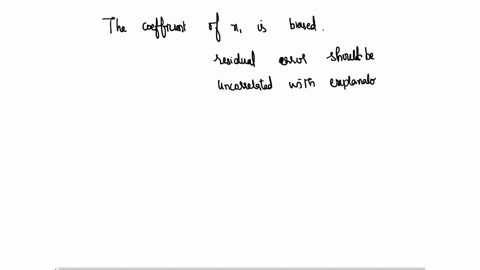 The coefficient of x₁ is biased.
residual error should be
uncorrelated with explanato